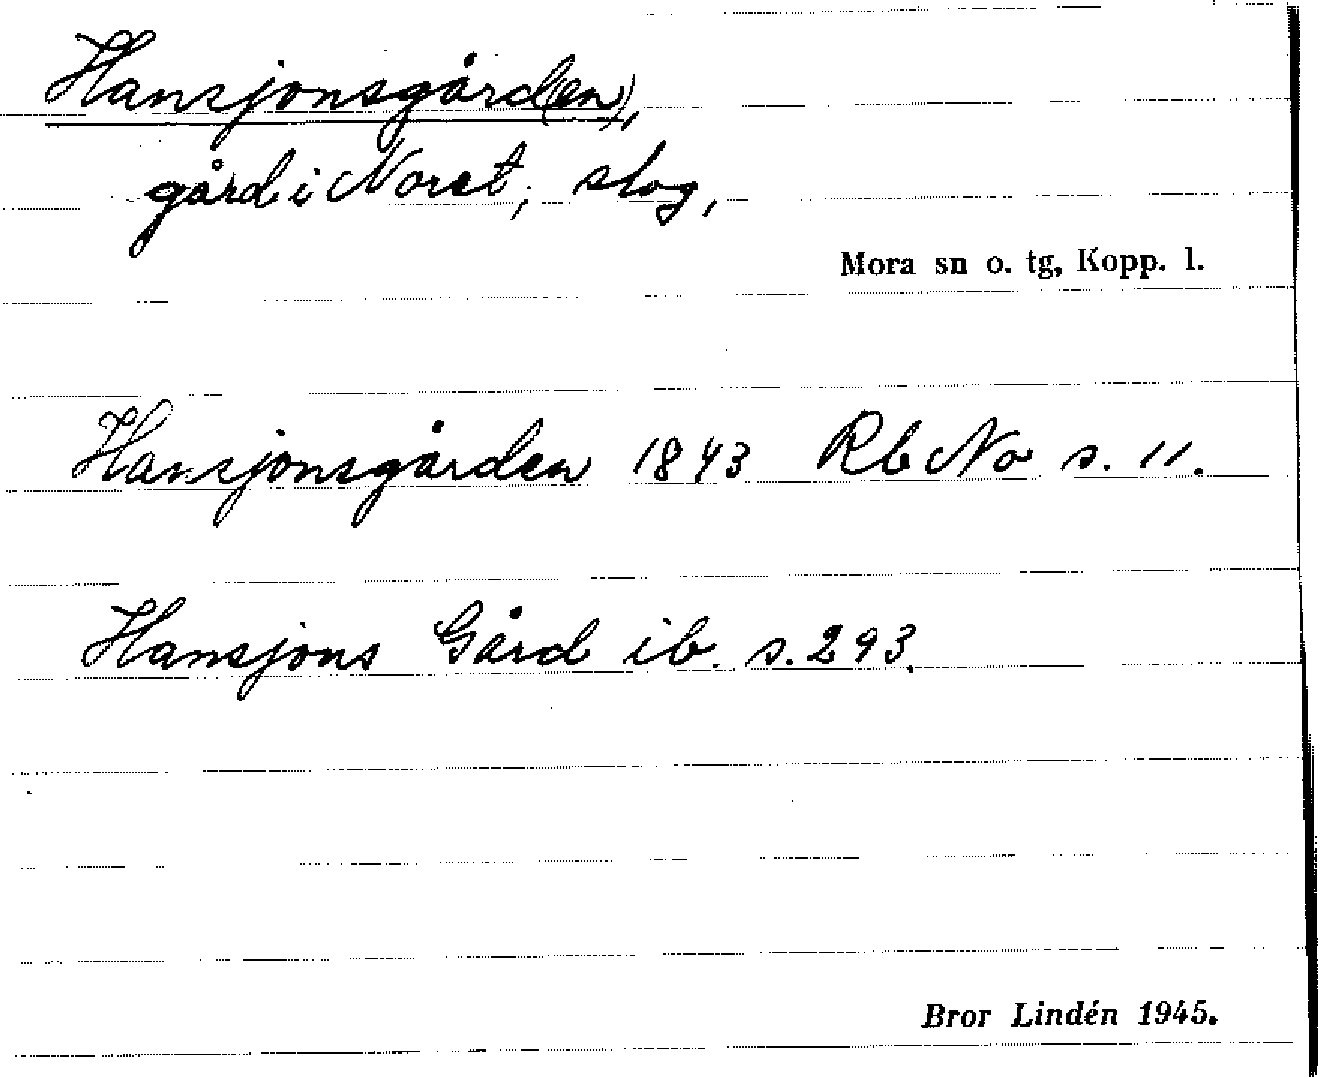 Hansjonsgård(en),
gård i Noret, slog,
Mora sn o. tg, Kopp. l.
Hansjonsgården 1843 Rb No s. 11.
Hansjons Gård ib. s. 293.
Bror Lindén 1945.